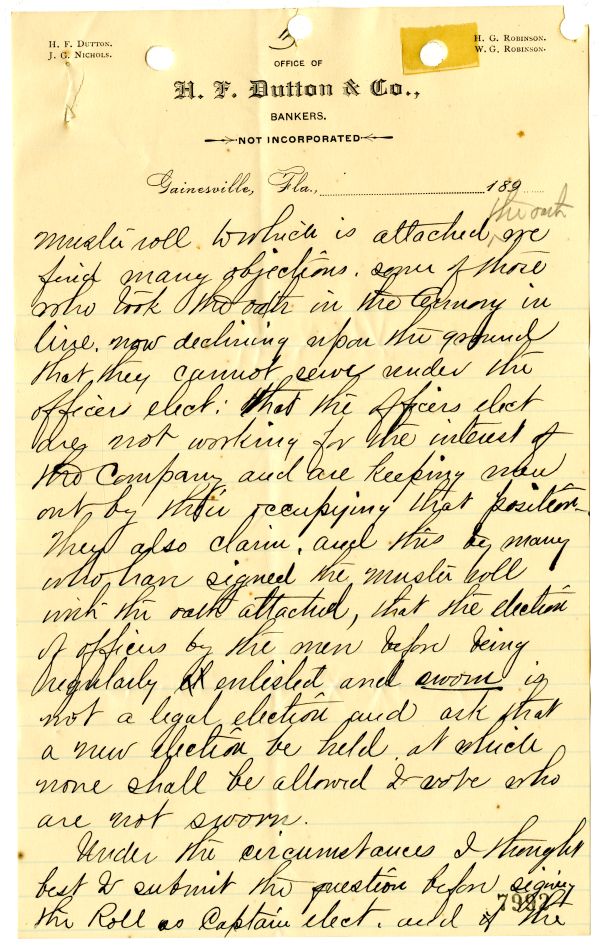 3
H. F. DUTTON.
J. G. NICHOLS.
H. G. ROBINSON.
W. G. ROBINSON.
OFFICE OF
H. F. Dutton & Co.,
BANKERS.
NOT INCORPORATED
Gainesville, Fla., 189
the oath
muster roll to which is attached we
find many objections. some of those
who took the oath in the Armory in
line. now declining upon the ground
that they cannot serve under the
officers elect; that the officers elect
are not working for the interest of
the Company and are keeping men
out by their occupying that position.
They also claim, and this by many
who have signed the muster roll
with the oath attached, that the election
of officers by the men before being
regularly enlisted and sworn is
not a legal election and ask that
a new election be held at which
none shall be allowed to vote who
are not sworn.
Under the circumstances I thought
best to submit the question before signing
the Roll as Captain elect. and if the
7992